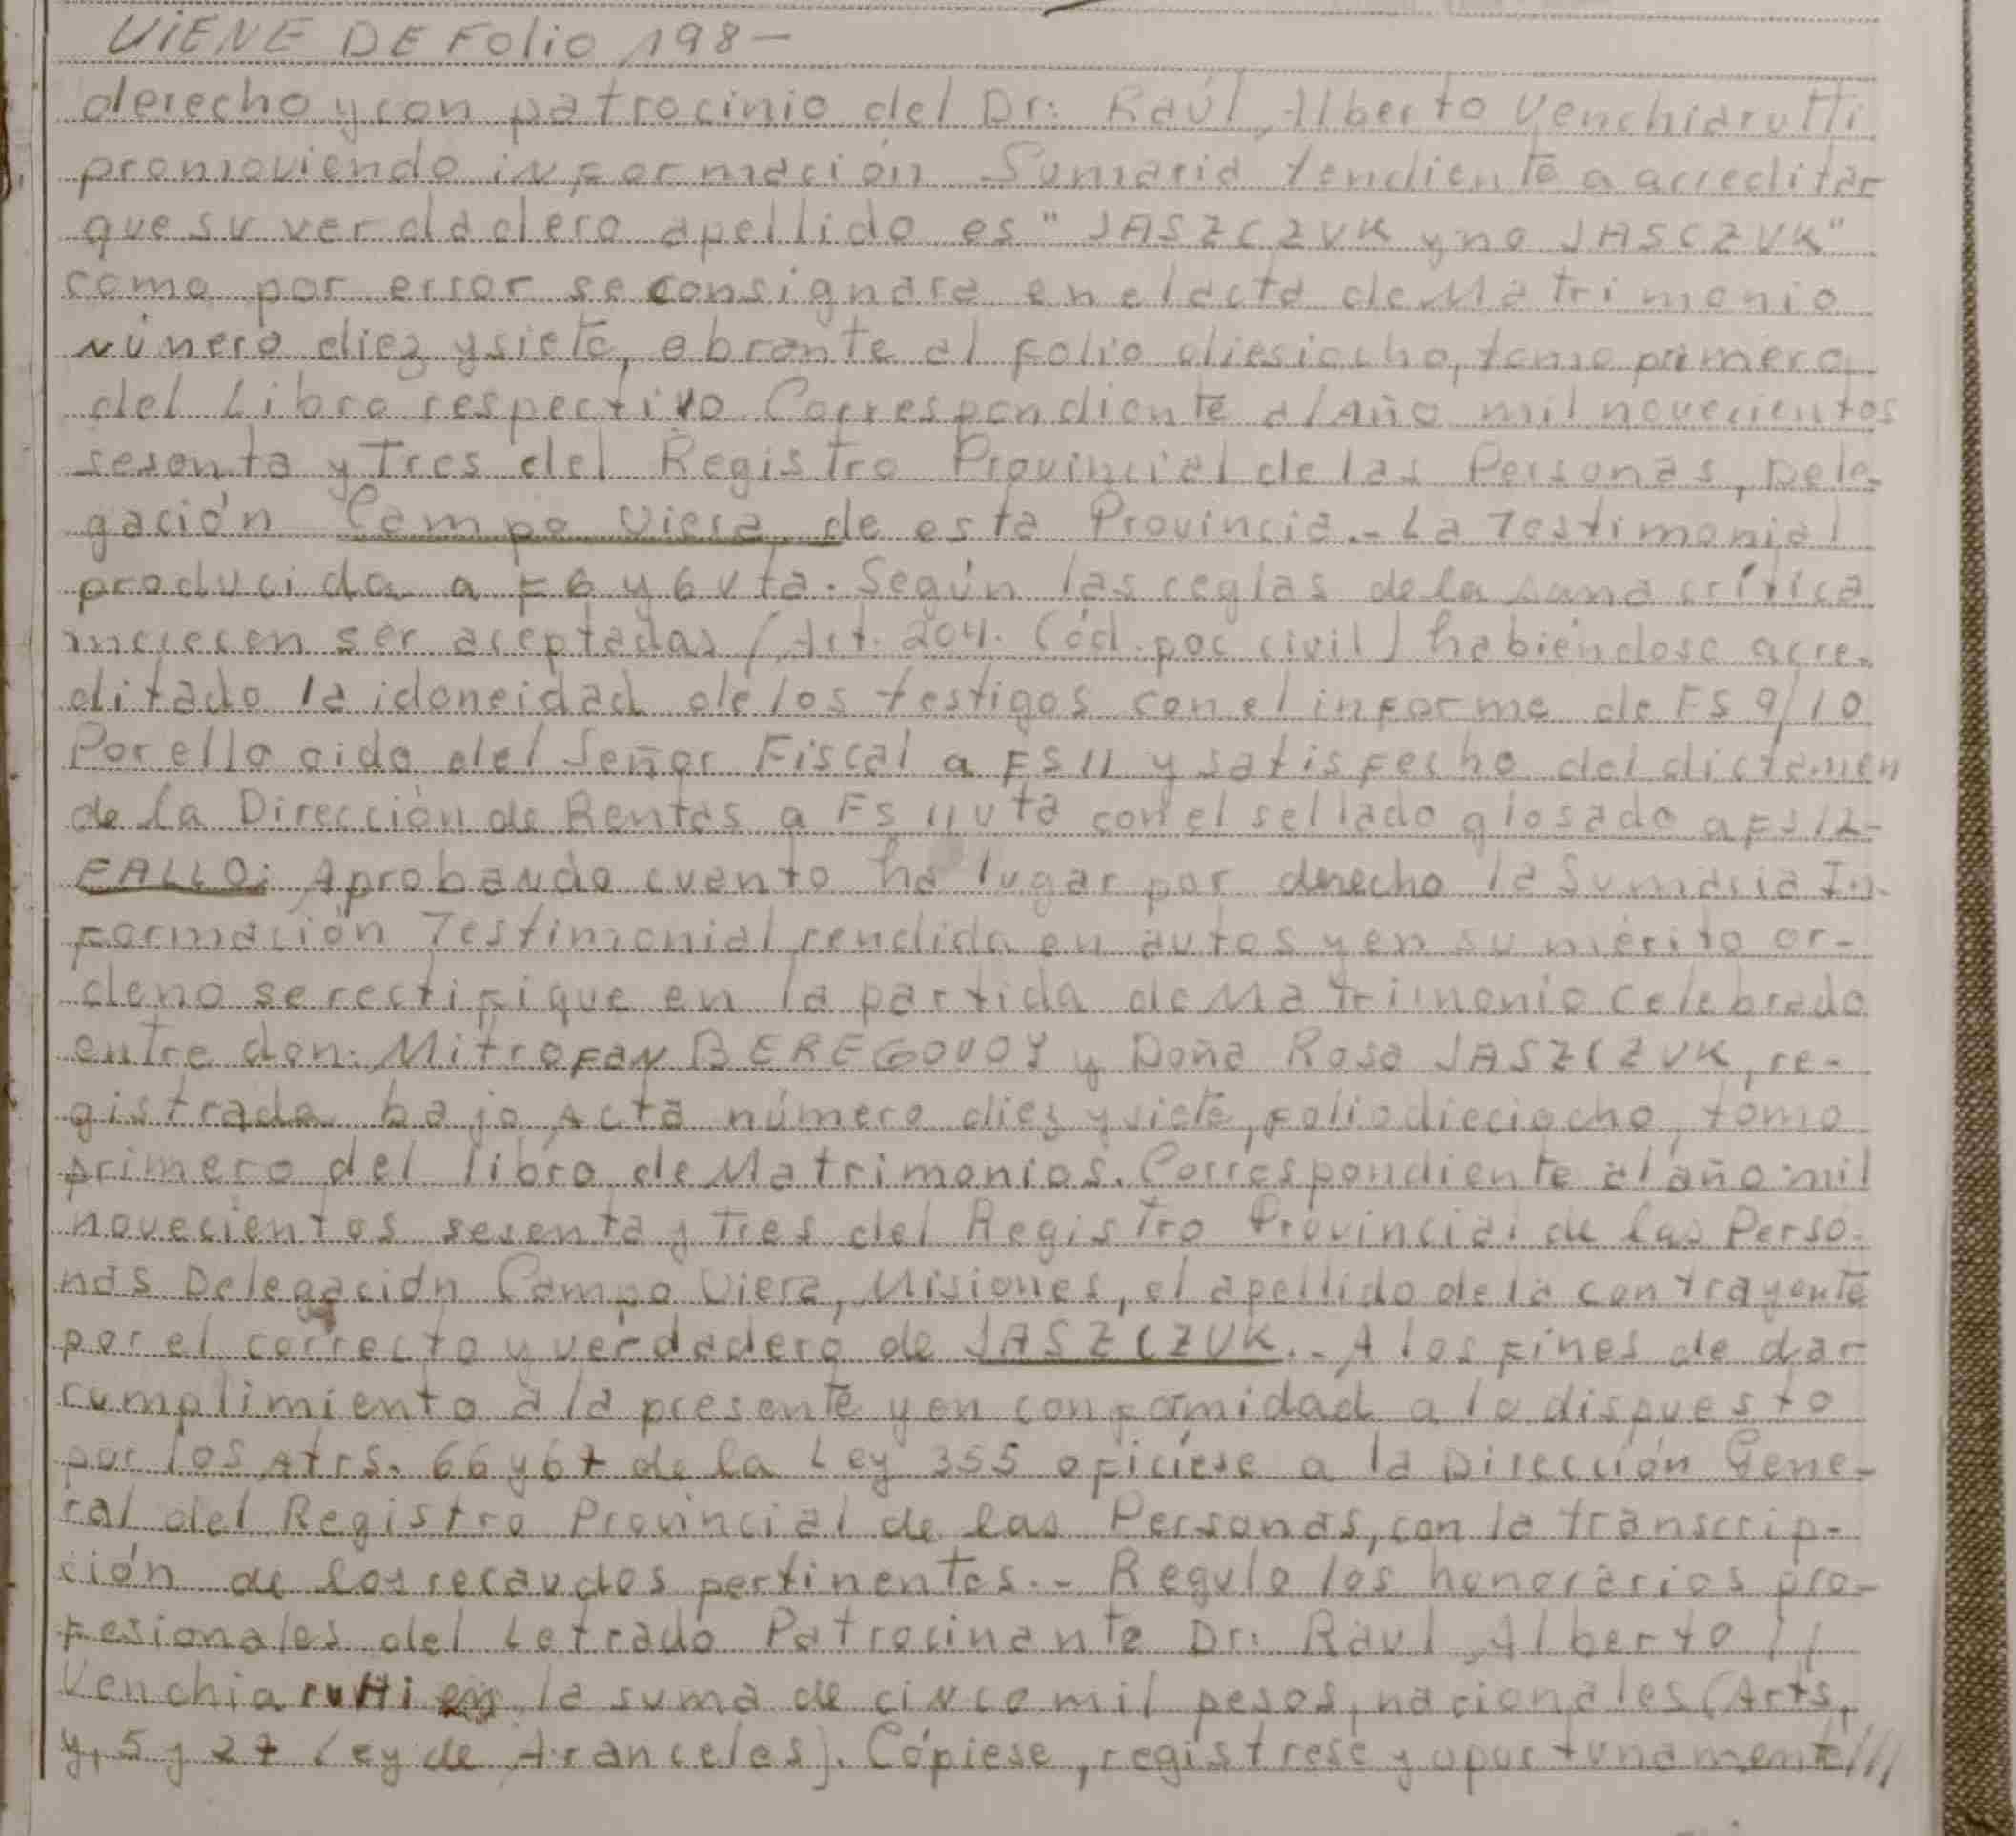 VIENE DE Folio 198-
derecho y con patrocinio del Dr: Raúl Alberto Venchiarutti
promoviendo información Sumaria tendiente a acreditar
que su verdadero apellido es "JASZCZUK y no JASCZUK"
como por error se consignara en el acta de Matrimonio
número diez y siete, obrante al folio diesiocho, tomo primero
del Libro respectivo. Correspondiente al Año mil novecientos
sesenta y Tres del Registro Provincial de las Personas, Dele-
gación Campo Viera de esta Provincia.- La Testimonial
producida a F6 y 6 vta. Según las reglas de la sana crítica
merecen ser aceptadas (Art. 204. Cód. poc civil) habiéndose acre-
ditado la idoneidad de los testigos con el informe de FS 9/10
Por ello oido del Señor Fiscal a FS 11 y satisfecho del dictamen
de la Dirección de Rentas a FS 11 vta con el sellado glosado a FS 12-
FALLO: Aprobando cuanto ha lugar por derecho la Sumaria In-
formación Testimonial rendida en autos y en su mérito or-
deno se rectifique en la partida de Matrimonio celebrado
entre don: Mitrofan BEREGOVOY y Doña Rosa JASZCZUK, re-
gistrada bajo Acta número diez y siete, folio dieciocho, tomo
primero del libro de Matrimonios. Correspondiente al año mil
novecientos sesenta y Tres del Registro Provincial de las Perso-
nas Delegación Campo Viera, Misiones, el apellido de la contrayente
por el correcto y verdadero de JASZCZUK.- A los fines de dar
cumplimiento a la presente y en conformidad a lo dispuesto
por los Atrs. 66 y 67 de la Ley 355 ofíciese a la Dirección Gene-
ral del Registro Provincial de las Personas, con la transcrip-
ción de los recaudos pertinentes.- Regulo los honorarios pro-
fesionales del Letrado Patrocinante Dr: Raúl Alberto //
Venchiarutti en la suma de cinco mil pesos, nacionales (Arts,
y, 5 y 27 Ley de Aranceles). Cópiese, regístrese y oportunamente///